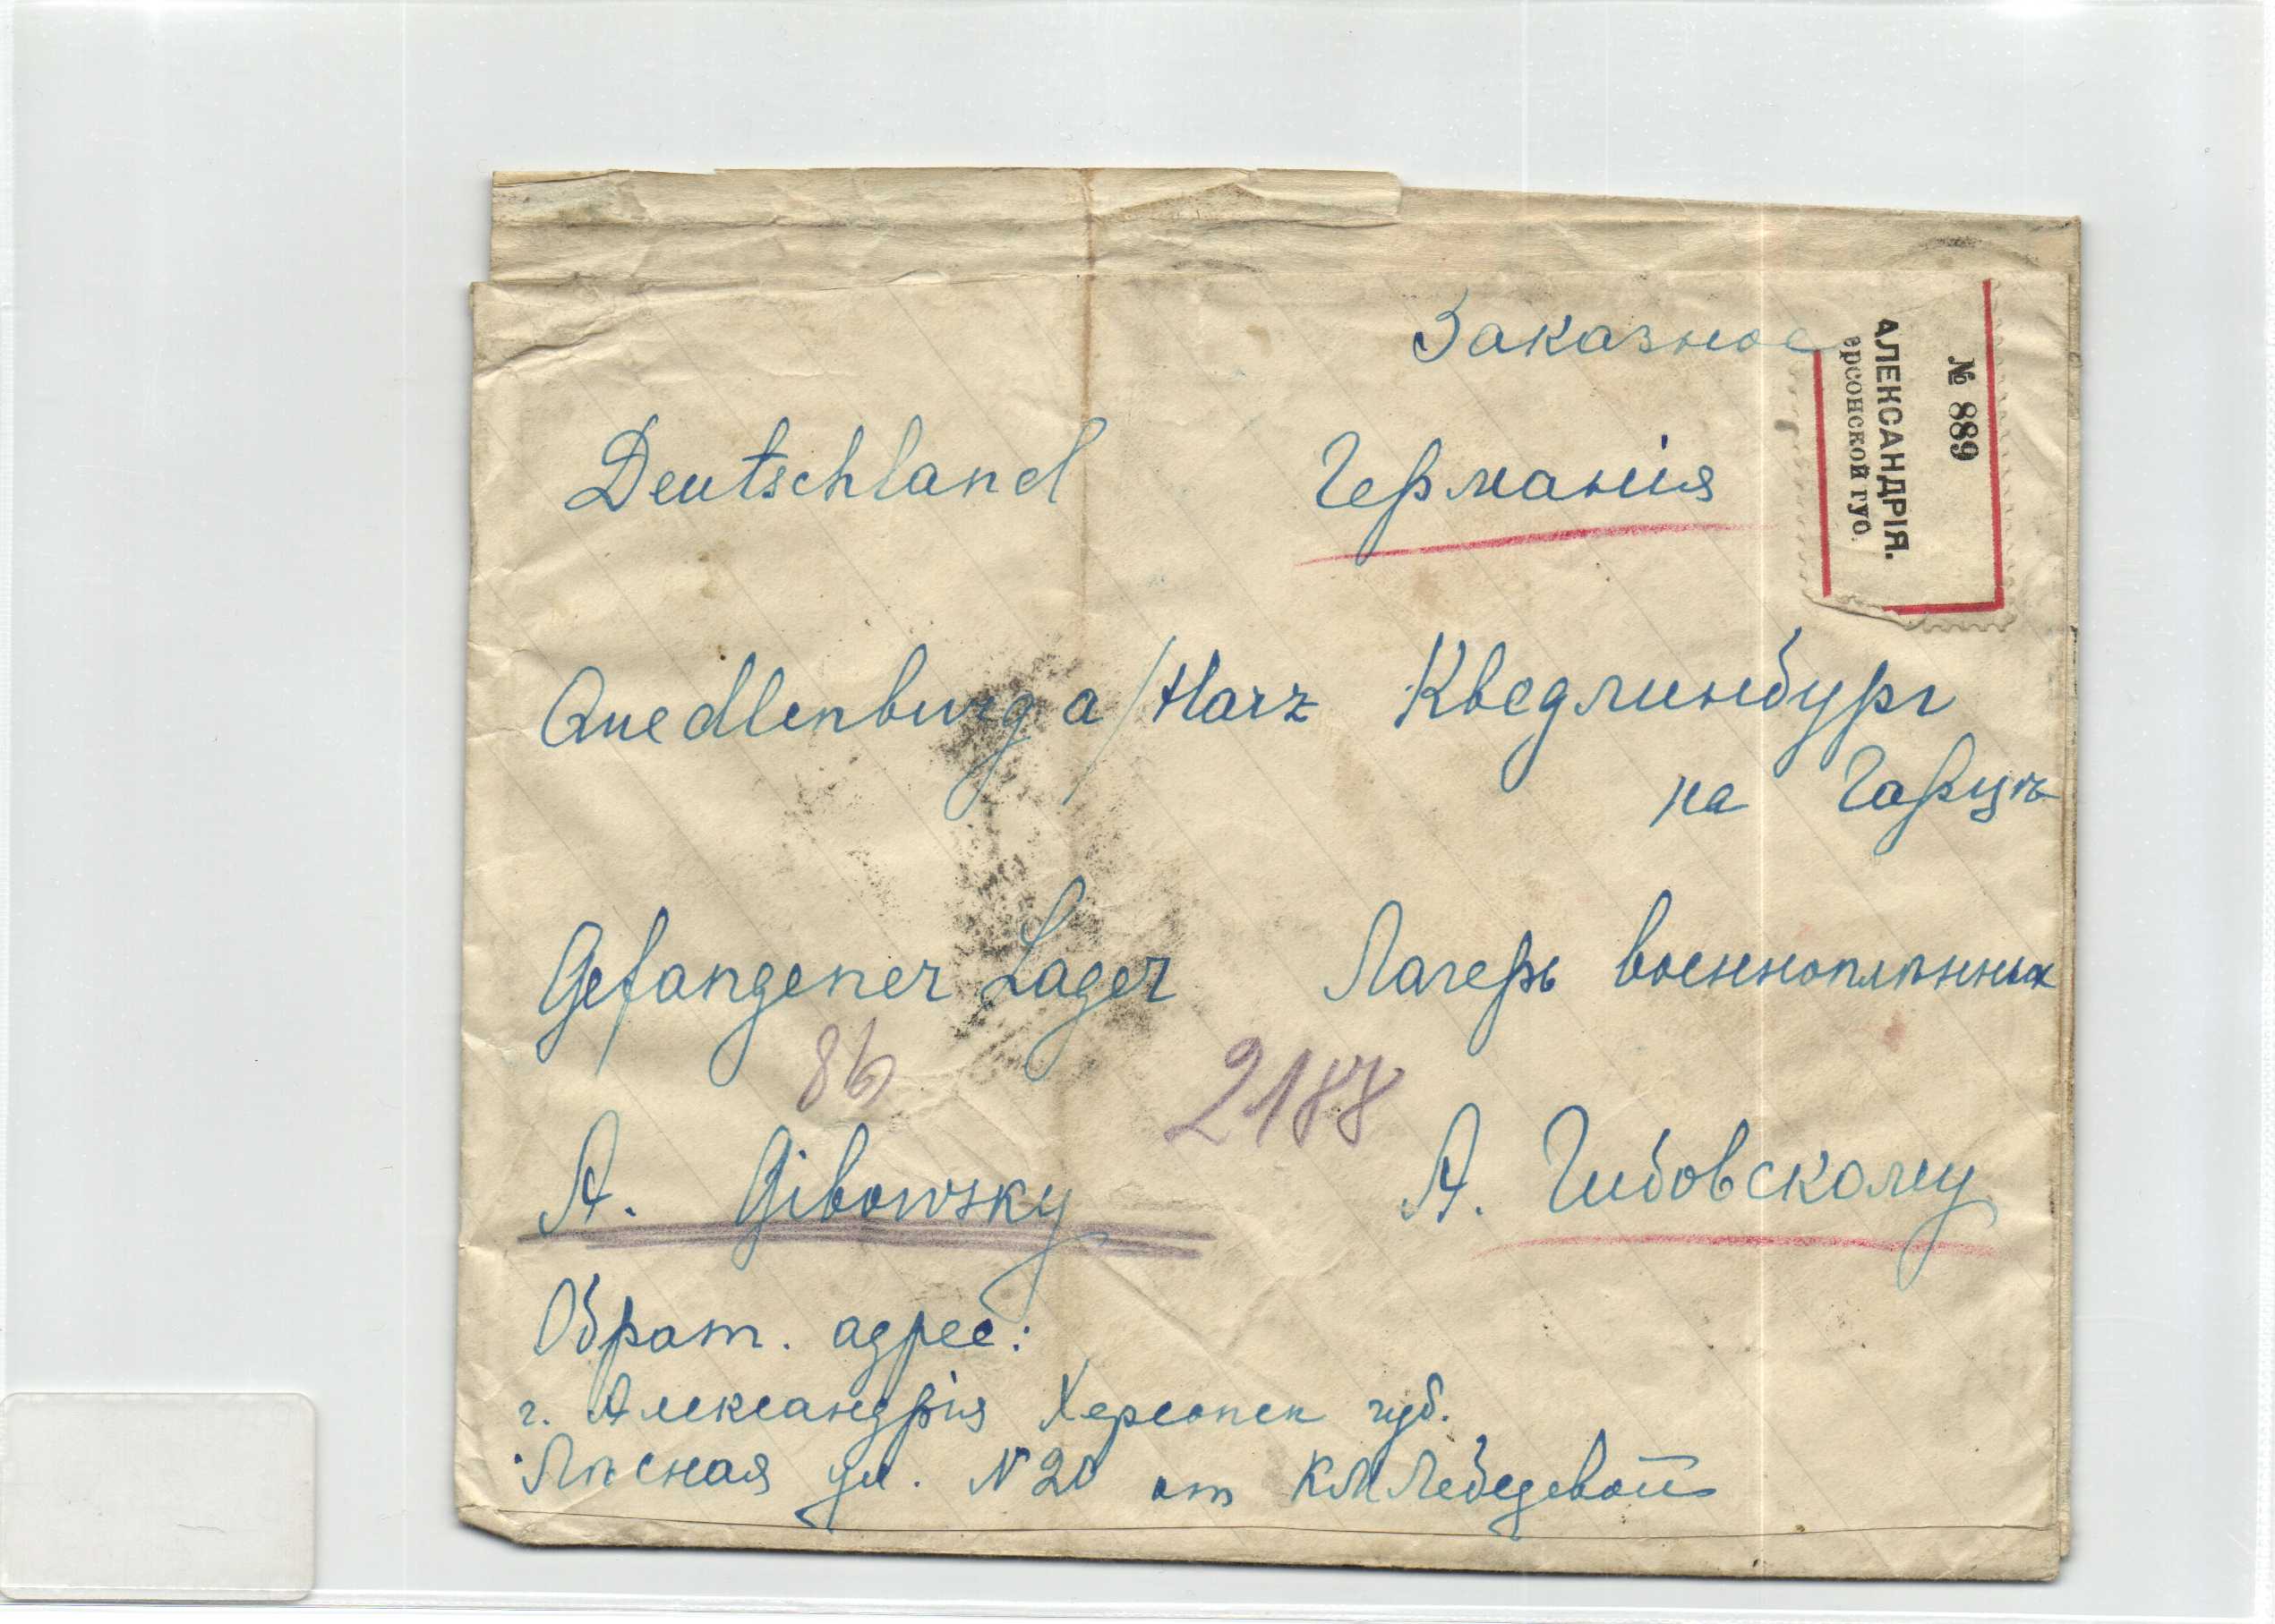 Заказное
№ 889
АЛЕКСАНДРІЯ.
ерсонской губ.
Deutschland Германія
Quedlenburg a/Harz Кведлинбург
на Гарцѣ
Gefangener Lager Лагерь военноплѣнных
86 2188
A. Gibowsky А. Гибовскому
Обрат. адрес:
г. Александрія Херсонск губ.
Лѣсная ул. N 20 от К М Лебедевой